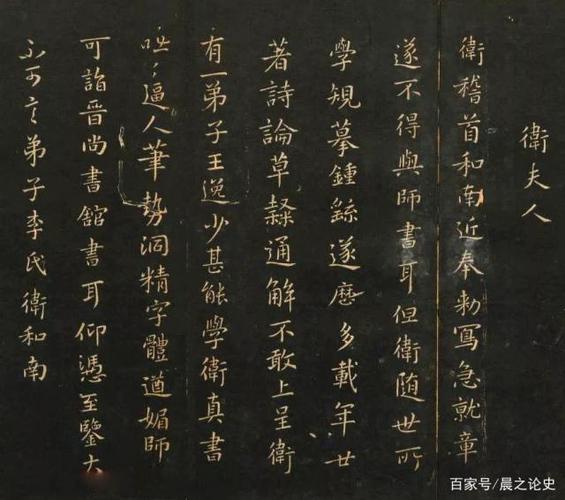 衛夫人
衛稽首和南近奉勅寫急就章
遂不得與師書耳但衛隨世所
學規摹鍾繇遂歷多載年廿
著詩論草隸通解不敢上呈衛
有一弟子王逸少甚能學衛真書
咄〻逼人筆勢洞精字體遒媚師
可詣晉尚書館書耳仰憑至鑒大
不可言弟子李氏衛和南
百家号/晨之论史